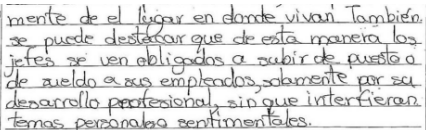 mente de el lugar en donde vivan También
se puede destacar que de esta manera los
jefes se ven obligados a subir de puesto o
de sueldo a sus empleados, solamente por su
desarrollo profesional, sin que interfieran
temas personales o sentimentales.